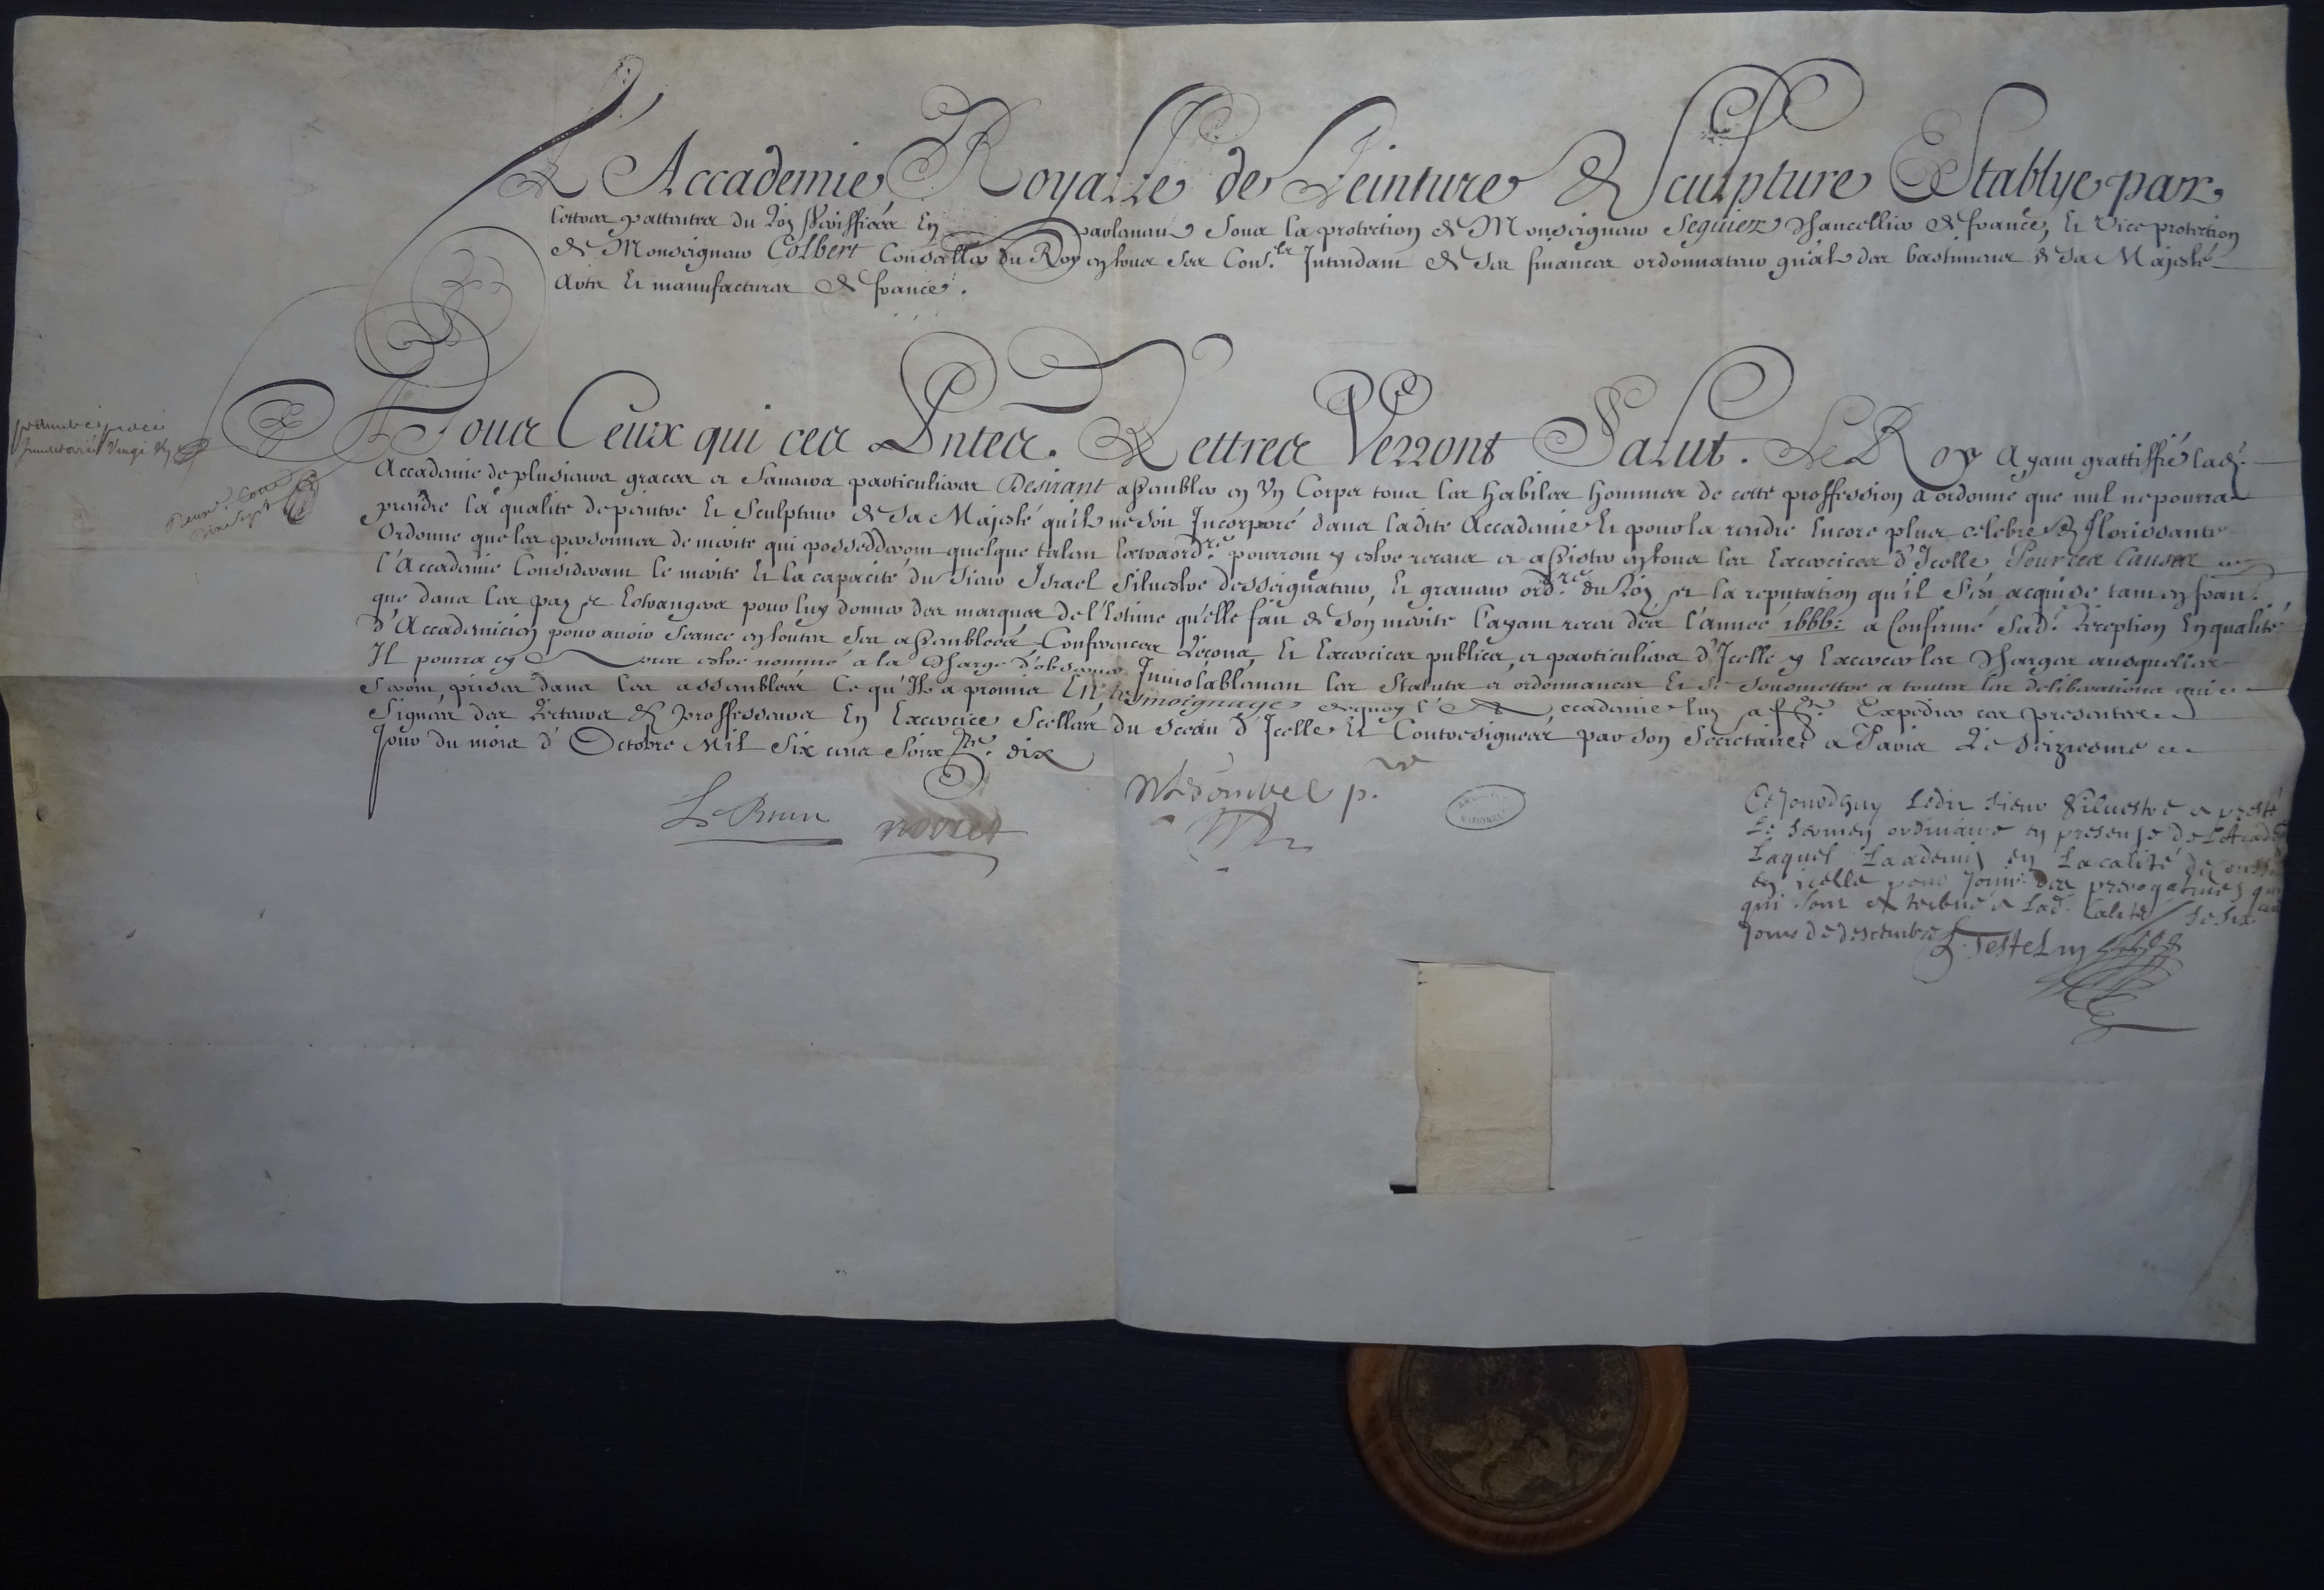 L'Accademie Royalle de Peinture & Sculpture Establye par
lettres pattentes du Roy Veriffiées En parlement Sous la protection de Monseigneur Seguier Chancellier de france, Et Vice protection
de Monseigneur Colbert Conseiller du Roy en tous ses Cons.lx Intendant de ses finances ordonnateur gnal des bastimens de Sa Majesté
Arts Et manufactures de france.
A Tous Ceux qui ces Pntes. Lettres Verront Salut. Le Roy Ayant grattiffié lad.
Accademie de plusieurs graces et faueurs particulieres Desirant assembler en Vn Corps tous les habiles hommes de cette proffession a ordonne que nul ne pourra
prendre la qualité de peintre Et Sculpteur de Sa Majesté qu'il ne soit Incorporé dans ladite Accademie Et pour la rendre Encore plus celebre & florissante
Ordonne que les personnes de merite qui possedderont quelque talent Extraord.re pourront y estre receus et assister en tous les Exercices d'Icelle Pour ces Causes
l'Accademie Considerant le merite Et la capacité du Sieur Israel Siluestre desseignateur, Et graueur ord.re du Roy et la reputation qu'il s'est acquise tant en fran.
que dans les pays Estrangers pour luy donner des marques de l'Estime qu'elle fait de Son merite l'ayant receu dés l'année 1666: a Confirmé Sad. Reception En qualité
d'Accademicien pour auoir Seance en toutes Ses assemblées Conferences Leçons Et Exercices publics, et particuliers d'Icelle y Exercer les Charges ausquelles
Il pourra cy estre nommé a la Charge d'obseruer Inuiolablement les Statuts et ordonnances Et se Soûsmettre a toutes les deliberations qui
Seront, prises dans les assemblées Ce qu'Il a promis En tesmoignage dequoy l'Accademie luy a f.t Expedier ces presentes
Signées des Recteurs & Proffesseurs En Exercice Scellées du Sceau d'Icelle Et Contresignées par son Secretaire a Paris Le Seiziesme
Jour du mois d'Octobre Mil Six cens Soix.te dix
Le Brun
nocret
Ce Jourdhuy Ledit Sieur Siluestre a presté
Le serment ordinaire en presense de L'Acad
Laquel Laademis en La calité de
en icelle pour Jouir des prerogatiues
qui sont atribué a Lad. Calité Le six
Jour de desembre
L. Testelin